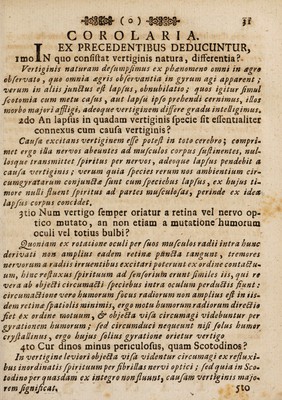 ( 0 ) 31
COROLARIA.
EX PRECEDENTIBUS DEDUCUNTUR,
1mo IN quo consistat vertiginis natura, differentia?
Vertiginis naturam desumpsimus ex phænomeno omni in ægro
observato, quo omnia ægris observantia in gyrum agi apparent;
verum in aliis junctus est lapsus, obnubilatio; quos igitur simul
scotomia cum metu casus, aut lapsu ipso prehendi cernimus, illos
morbo majori affligi, adeoque vertiginem differe gradu intelligimus.
2do An lapsus in quadam vertiginis specie sit essentialiter
connexus cum causa vertiginis?
Causa excitans vertiginem esse potest in toto cerebro; comprimet
ergo illa nervos abeuntes ad musculos corpus sustinentes, nullosque
transmittet spiritus per nervos, adeoque lapsus pendebit a
causa vertiginis; verum quia species rerum nos ambientium
circumgyratarum conjuncta sunt cum speciebus lapsus, ex hujus timore
nulli fluent spiritus ad partes musculosas, perinde ex idea
lapsus corpus concidet.
3tio Num vertigo semper oriatur a retina vel nervo optico
mutato, an non etiam a mutatione humorum
oculi vel totius bulbi?
Quoniam ex rotatione oculi per suos musculos radii intra hunc
derivati non amplius eadem retina puncta tangunt, tremores
nervorum a radiis irruentibus excitari poterunt ex ordine contactuum,
hinc refluxus spirituum ad sensorium erunt similes iis, qui revera
ab objecti circumacti speciebus intra oculum perductis fiunt:
circumactione vero humorum focus radiorum non amplius est in iisdem
retina spatiolis minimis, ergo motu humorum radiorum directio
fiet ex ordine motuum, & objecta visa circumagi videbuntur per
gyrationem humorum; sed circumduci nequeunt nisi solus humor
crystallinus, ergo hujus solius gyratione orietur vertigo
4to Cur dinos minus periculosus, quam Scotodinos?
In vertigine leviori objecta visa videntur circumagi ex refluxibus
inordinatis spirituum per fibrillas nervi optici; sed quia in Scotodino
per quasdam ex integro non fluunt, causam vertiginis majorem
significat. 5to